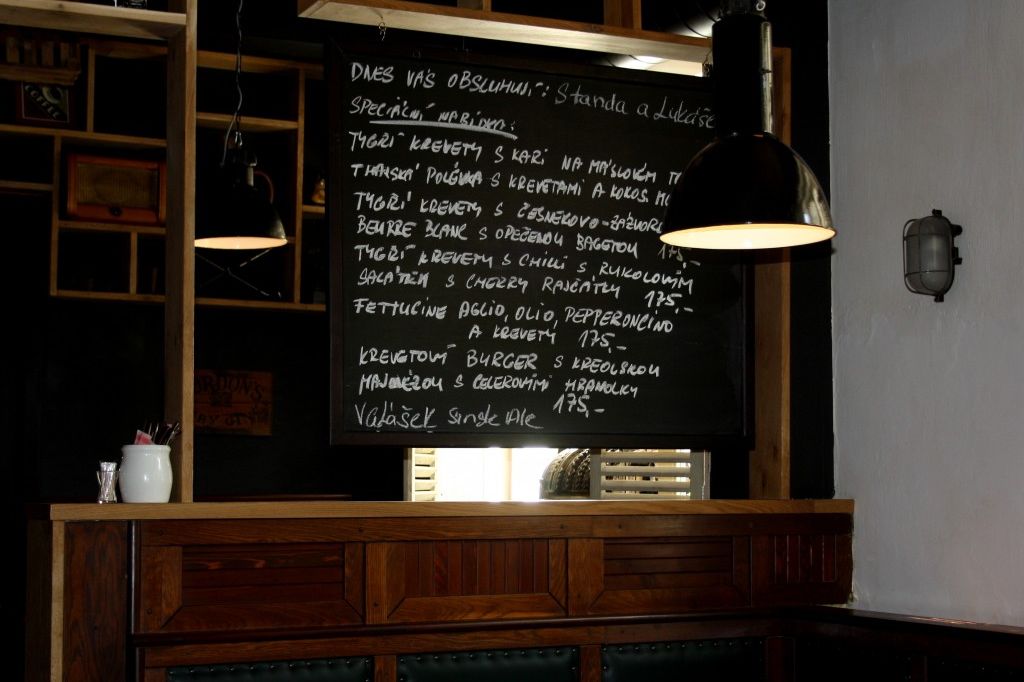 DNES VÁS OBSLUHUJÍ: Standa a Lukáš
SPECIÁLNÍ NABÍDKA:
TYGŘÍ KREVETY S KARI NA MÁSLOVÉM
THAJSKÁ POLÉVKA S KREVETAMI A KOKOS.
TYGŘÍ KREVETY S ČESNEKOVO-ZÁZVOR
BEURRE BLANC S OPEČENOU BAGETOU 175,-
TYGŘÍ KREVETY S CHILLI S RUKOLOVÝM
SALÁTEM S CHERRY RAJČÁTKY 175,-
FETTUCINE AGLIO, OLIO, PEPPERONCINO
A KREVETY 175,-
KREVETOVÝ BURGER S KREOLSKOU
MAJONÉZOU S CELEROVÝMI HRANOLKY
175,-
Valášek Single Ale